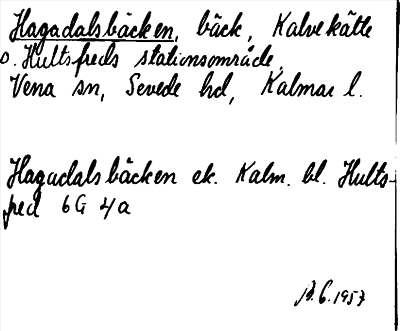 Hagadalsbäcken, bäck, Kalvekätte
o. Hultsfreds stationsområde,
Vena sn, Sevede hd, Kalmar l.
Hagadalsbäcken ek. Kalm. bl. Hults-
fred 6G 4a
1957